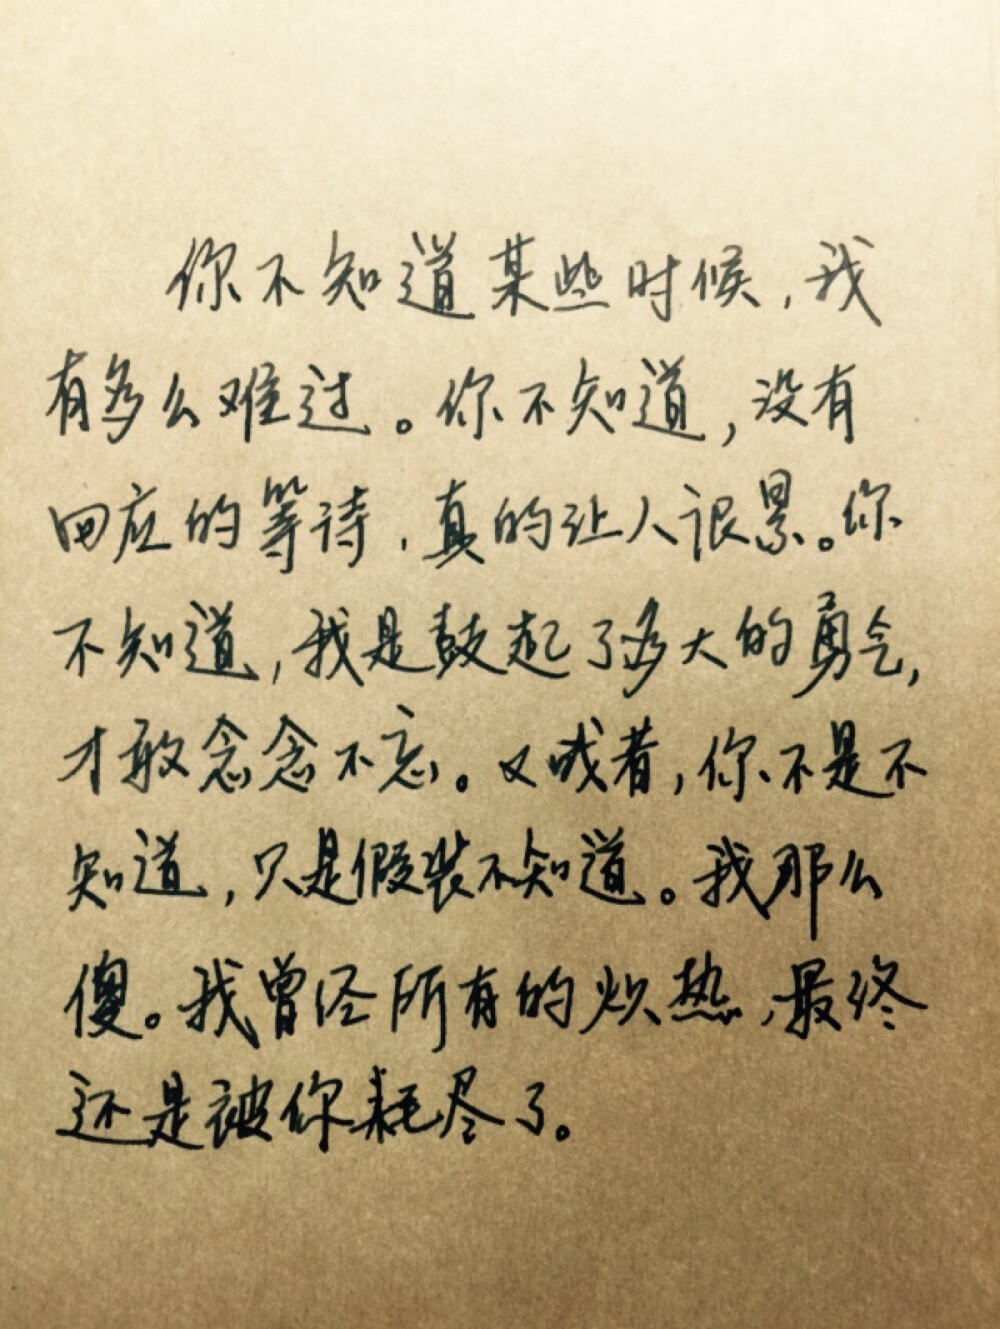 你不知道某些时候，我
有多么难过。你不知道，没有
回应的等待，真的让人很累。你
不知道，我是鼓起了多大的勇气，
才敢念念不忘。又或者，你不是不
知道，只是假装不知道。我那么
傻。我曾经所有的炽热，最终
还是被你耗尽了。